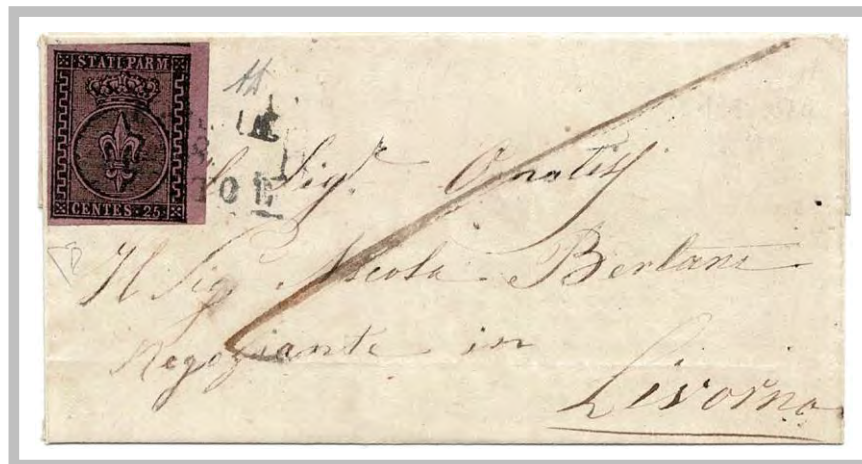 STATI PARM
CENTES. 25
Sigr. Ornatis
Il Sig Nicola Bertani
Negoziante in
Livorno